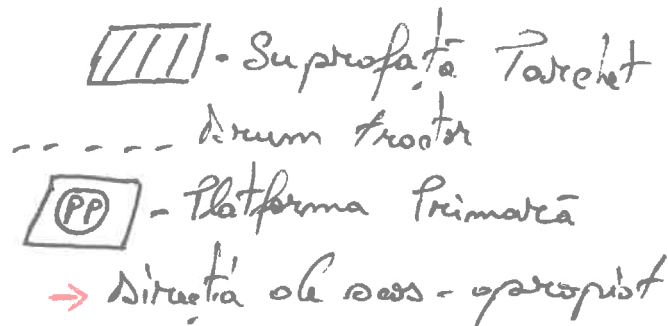 - Suprafață Parchet
Drum tractor
PP - Platforma Primară
Direcția de scos - apropiat